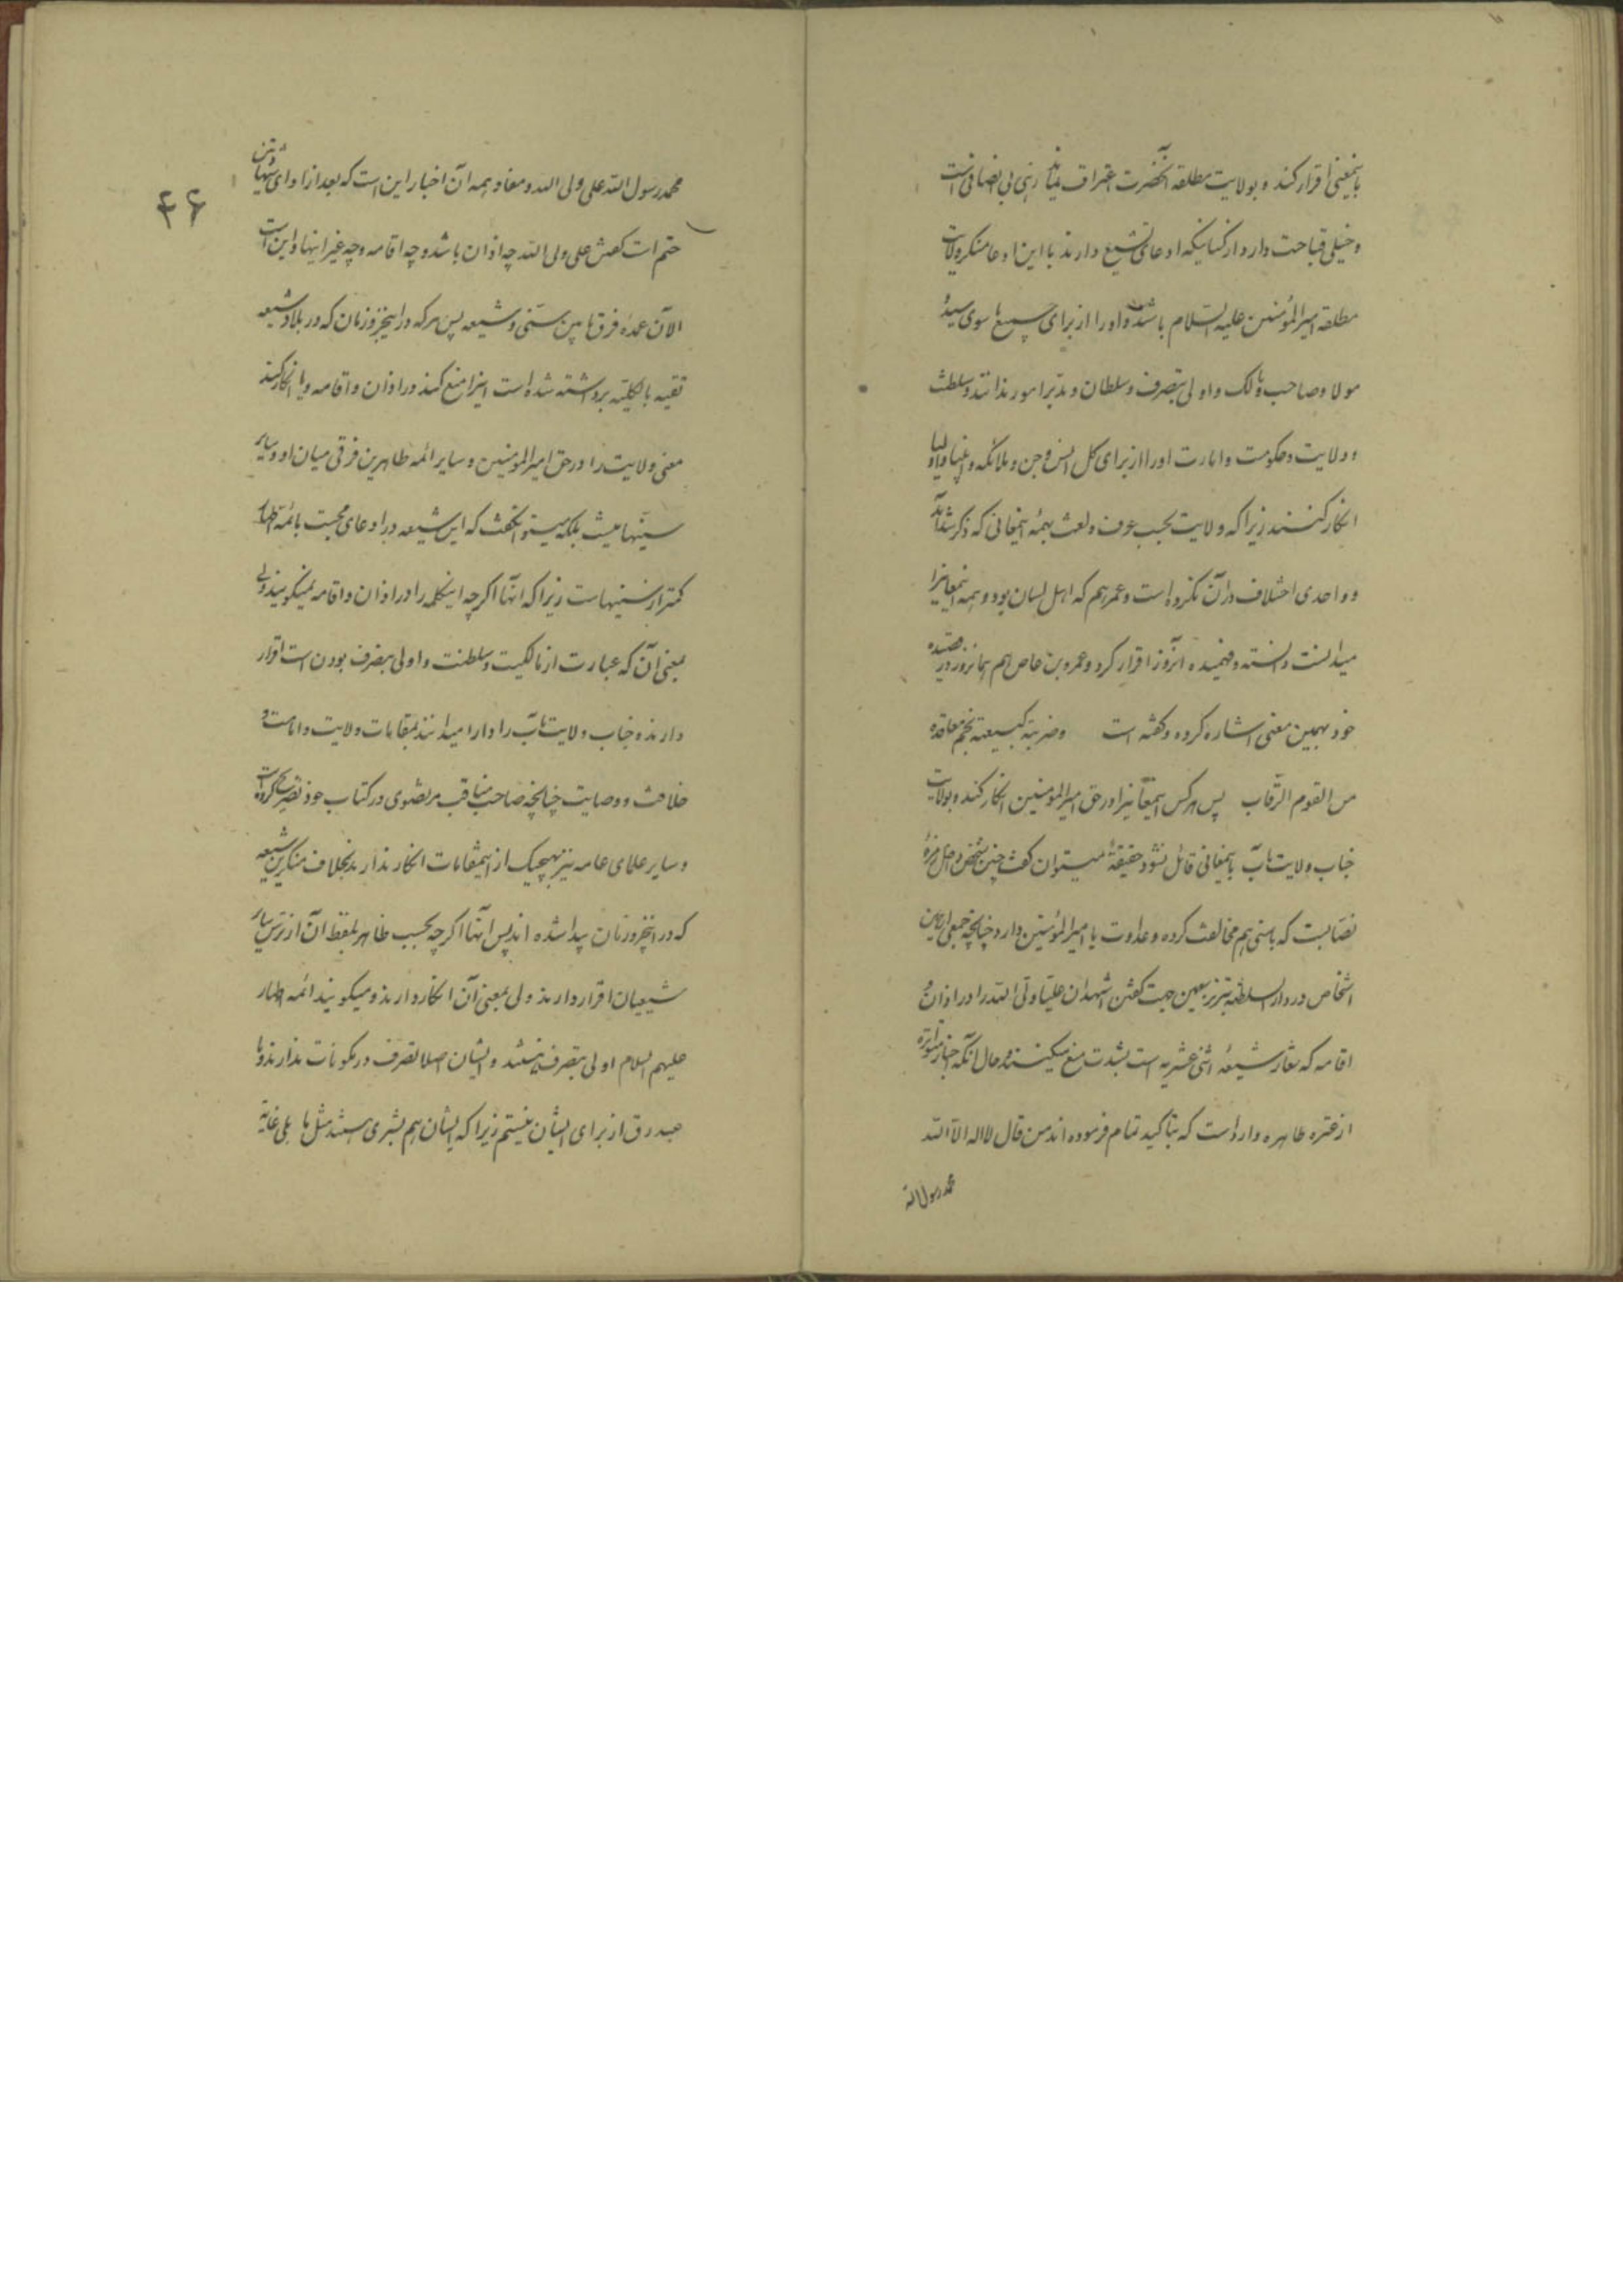 باینمعنی اقرار کند و بولایت مطلقه آنحضرت اعتراف نماید زهی بی انصافی است
و خیلی قباحت دارد از کسانیکه ادعای تشیع دارند با این ادعا منکر ولایت
مطلقه امیرالمؤمنین علیه السلام باشند و او را از برای جمیع ما سوی سید
مولا و صاحب و مالک و اولی بتصرف و سلطان و مدبر امور ندانند و سلطنت
و ولایت و حکومت و امارت او را از برای کل انس و جن و ملائکه و انبیا و اولیا
انکار کنند زیرا که ولایت بحسب عرف و لغت بهمه اینمعانی که ذکر شد آمده
و واحدی اختلاف در آن نکرده است و عمر هم که اهل لسان بود و همه اینمعانیرا
میدانست دانسته و فهمیده آنروز اقرار کرد و عمرو بن عاص هم همانروز در قصیده
خود بهمین معنی اشاره کرده و گفته است و ضربته کبیعته بخم معاقده
من القوم الرقاب پس هر کس اینمعانیرا در حق امیرالمؤمنین انکار کند و بولایت
جناب ولایت مآب باینمعانی قائل نشود حقیقة میتوان گفت چنین شخص داخل زمره
نصّابست که با سنی هم مخالفت کرده و عداوت با امیرالمؤمنین دارد چنانچه جمعی از همین
اشخاص در دارالسلطنه تبریز بهمین جهت گفتن اشهد ان علیا ولی الله را در اذان و
اقامه که شعار شیعه اثنی عشریه است بشدت منع میکنند و حال آنکه اخبار متواتره
از عتره طاهره وارد است که بتاکید تمام فرموده اند من قال لا اله الا الله
محمد رسول الله
۴۶
محمد رسول الله علی ولی الله و مفاد همه آن اخبار این است که بعد از ادای شهادتین
حتم است گفتن علی ولی الله چه اذان باشد و چه اقامه و چه غیر اینها و این است
الآن عمده فرق ما بین سنّی و شیعه پس هر که در اینجزو زمان که در بلاد شیعه
تقیه بالکلیه برداشته شده است اینرا منع کند در اذان و اقامه و یا انکار کند
معنی ولایت را در حق امیرالمؤمنین و سایر ائمه طاهرین فرقی میان او و سایر
سنّیها نیست بلکه میتوانگفت که این شیعه در ادعای محبت بائمه اطهار
کمتر از سنیهاست زیرا که آنها اگرچه اینکلمه را در اذان و اقامه نمیگویند ولی
بمعنی آن که عبارت از مالکیت و سلطنت و اولی بتصرف بودن است اقرار
دارند و جناب ولایت مآب را دارا میدانند بمقامات ولایت و امامت و
خلافت و وصایت چنانچه صاحب مناقب مرتضوی در کتاب خود تصریح کرده است
و سایر علمای عامه نیز بهیچیک از اینمقامات انکار ندارند بخلاف منکرین شیعه
که در اینجزو زمان پیدا شده اند پس آنها اگرچه بحسب ظاهر بلفظ آن از ترس سایر
شیعیان اقرار دارند ولی بمعنی آن انکار دارند و میگویند ائمه اطهار
علیهم السلام اولی بتصرف نیستند و ایشان اصلا تصرف در مکونات ندارند و ما
عبد رق از برای ایشان نیستیم زیرا که ایشان هم بشری هستند مثل ما بلی غایة